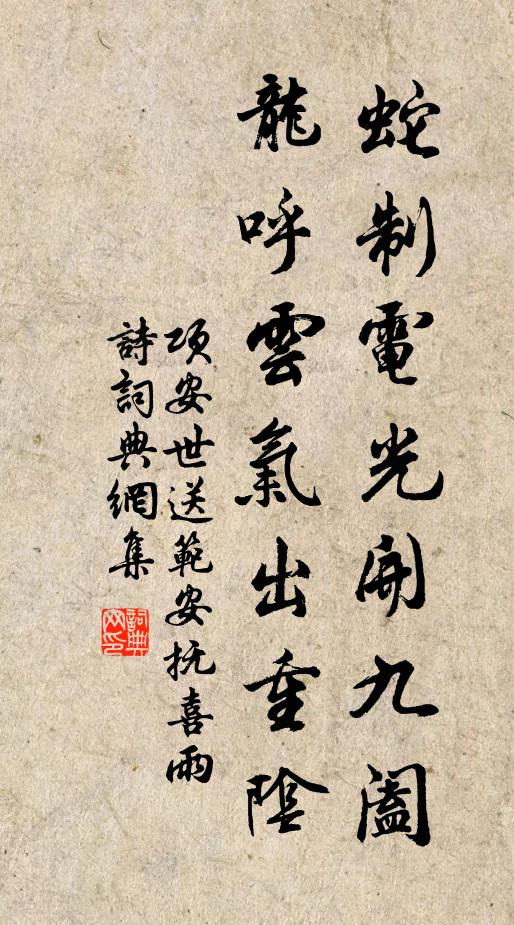 蛇制電光開九闔
龍呼雲氣出重陰
項安世送範安抚喜雨
詩詞典網集
詞典网印